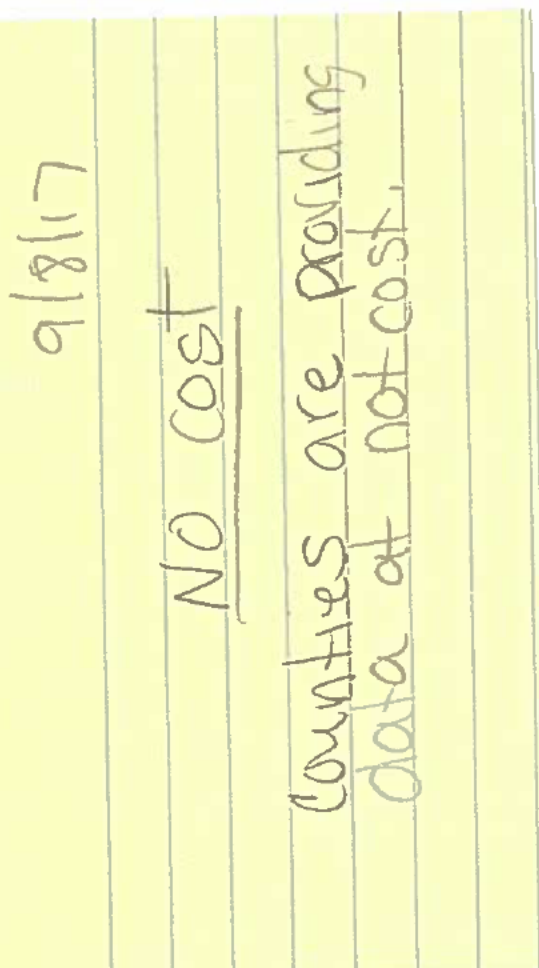 9/8/17
No cost
Counties are providing
data at not cost.